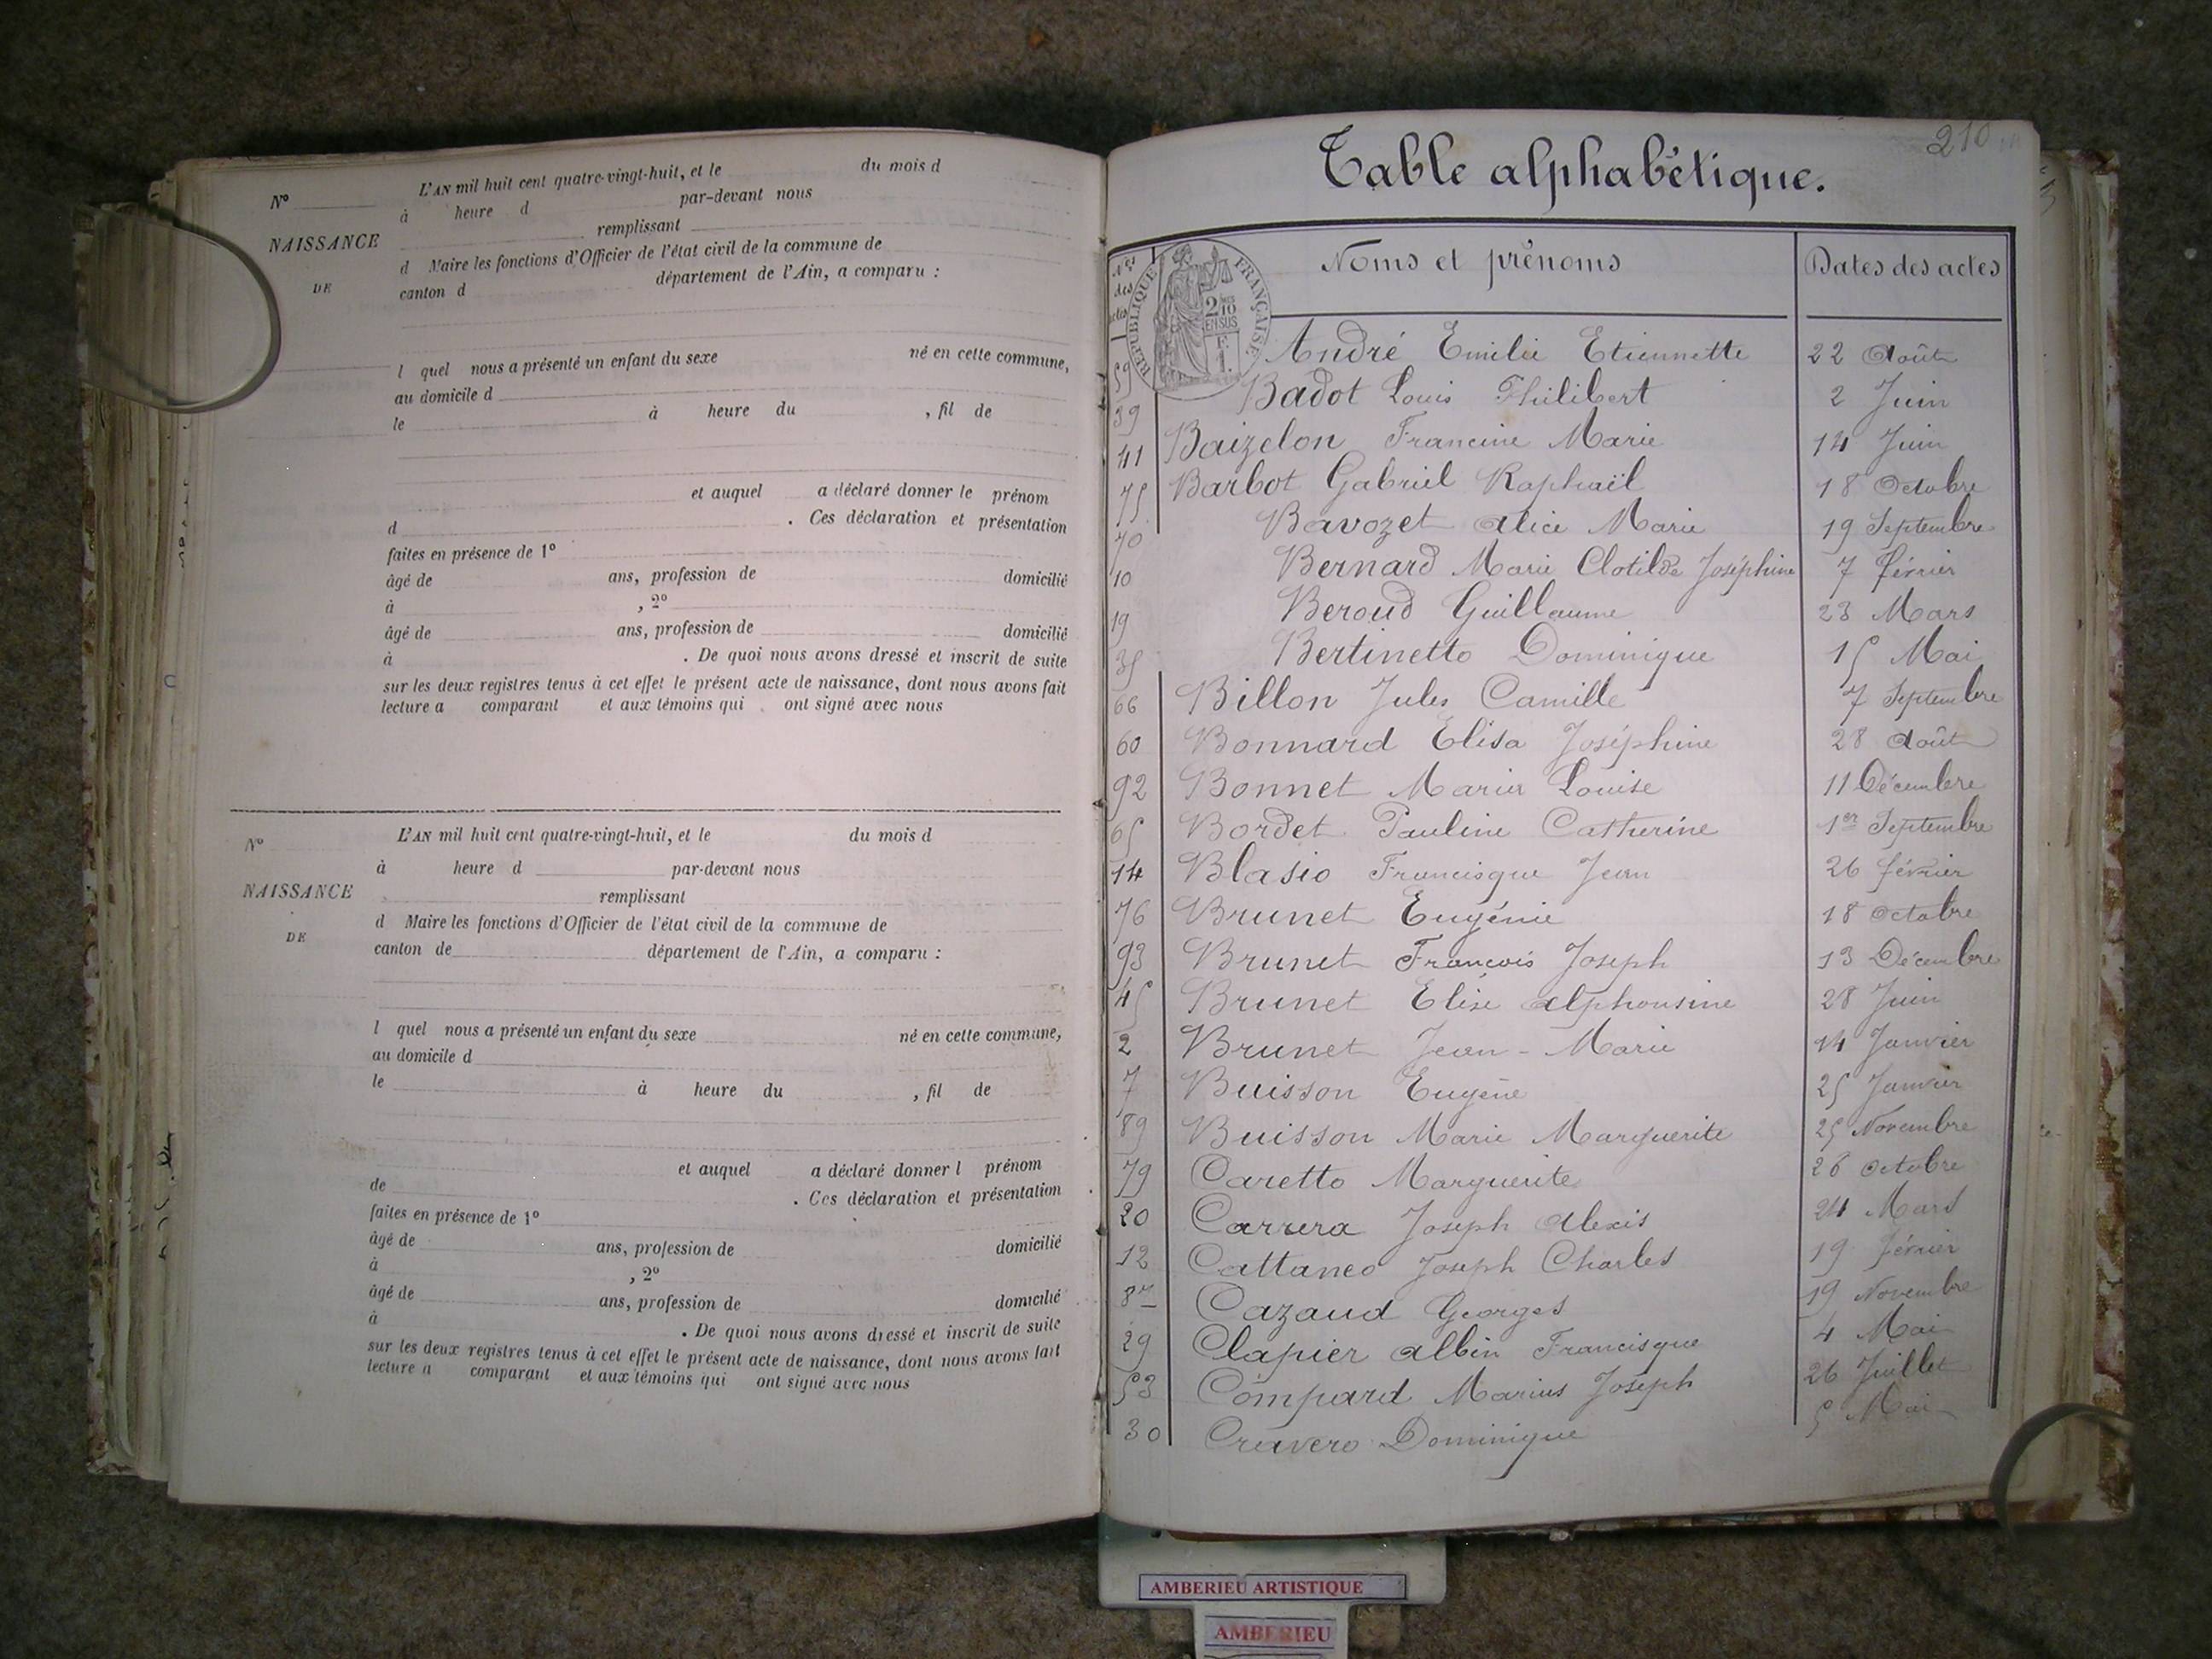 L'AN mil huit cent quatre-vingt-huit, et le du mois d
Nº
à heure d par-devant nous
remplissant
NAISSANCE
d Maire les fonctions d'Officier de l'état civil de la commune de
DE
canton d département de l'Ain, a comparu :
l quel nous a présenté un enfant du sexe né en cette commune,
au domicile d
le à heure du , fil de
et auquel a déclaré donner le prénom
d . Ces déclaration et présentation
faites en présence de 1º
âgé de ans, profession de domicilié
à , 2º
âgé de ans, profession de domicilié
à . De quoi nous avons dressé et inscrit de suite
sur les deux registres tenus à cet effet le présent acte de naissance, dont nous avons fait
lecture a comparant et aux témoins qui ont signé avec nous
Nº L'AN mil huit cent quatre-vingt-huit, et le du mois d
à heure d par-devant nous
NAISSANCE remplissant
d Maire les fonctions d'Officier de l'état civil de la commune de
DE
canton de département de l'Ain, a comparu :
l quel nous a présenté un enfant du sexe né en cette commune,
au domicile d
le à heure du , fil de
et auquel a déclaré donner l prénom
de . Ces déclaration et présentation
faites en présence de 1º
âgé de ans, profession de domicilié
à , 2º
âgé de ans, profession de domicilié
à . De quoi nous avons dressé et inscrit de suite
sur les deux registres tenus à cet effet le présent acte de naissance, dont nous avons fait
lecture a comparant et aux témoins qui ont signé avec nous
210
Table alphabétique.
Nos des actes Noms et prénoms Dates des actes
REPUBLIQUE FRANÇAISE
2/10
EN SUS
59 André Emilie Etiennette 22 Août
39 Badot Louis Philibert 2 Juin
41 Baizelon Francine Marie 14 Juin
75 Barbot Gabriel Raphaël 18 Octobre
70 Bavozet Alice Marie 19 Septembre
10 Bernard Marie Clotilde Joséphine 7 février
19 Beroud Guillaume 23 Mars
35 Bertinetto Dominique 15 Mai
66 Billon Jules Camille 7 Septembre
60 Bonnard Elisa Joséphine 28 Août
92 Bonnet Marie Louise 11 Décembre
65 Bordet Pauline Catherine 1er Septembre
14 Blasio Francisque Jean 26 février
76 Brunet Eugénie 18 Octobre
93 Brunet François Joseph 13 Décembre
45 Brunet Elise Alphonsine 28 Juin
2 Brunet Jean-Marie 14 Janvier
7 Buisson Eugène 25 Janvier
89 Buisson Marie Marguerite 25 Novembre
79 Caretto Marguerite 26 Octobre
20 Carrera Joseph Alexis 24 Mars
12 Cattaneo Joseph Charles 19 février
87 Cazaud Georges 19 Novembre
29 Clapier Albin Francisque 4 Mai
53 Compard Marius Joseph 26 Juillet
30 Cravero Dominique 5 Mai
AMBERIEU ARTISTIQUE
AMBERIEU